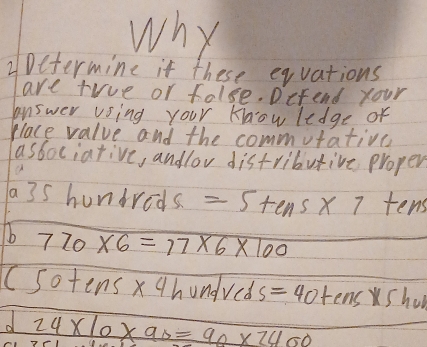 Why
2 Determine if these equations
are true or false. Defend your
answer using your knowledge of
place value and the commutative,
associative, and/or distributive proper
a 35 hundreds = 5 tens x 7 tens
b 770 x 6 = 77 x 6 x 100
c 50 tens x 4 hundreds = 40 tens x 5 hun
d 24 x 10 x 90 = 90 x 2400